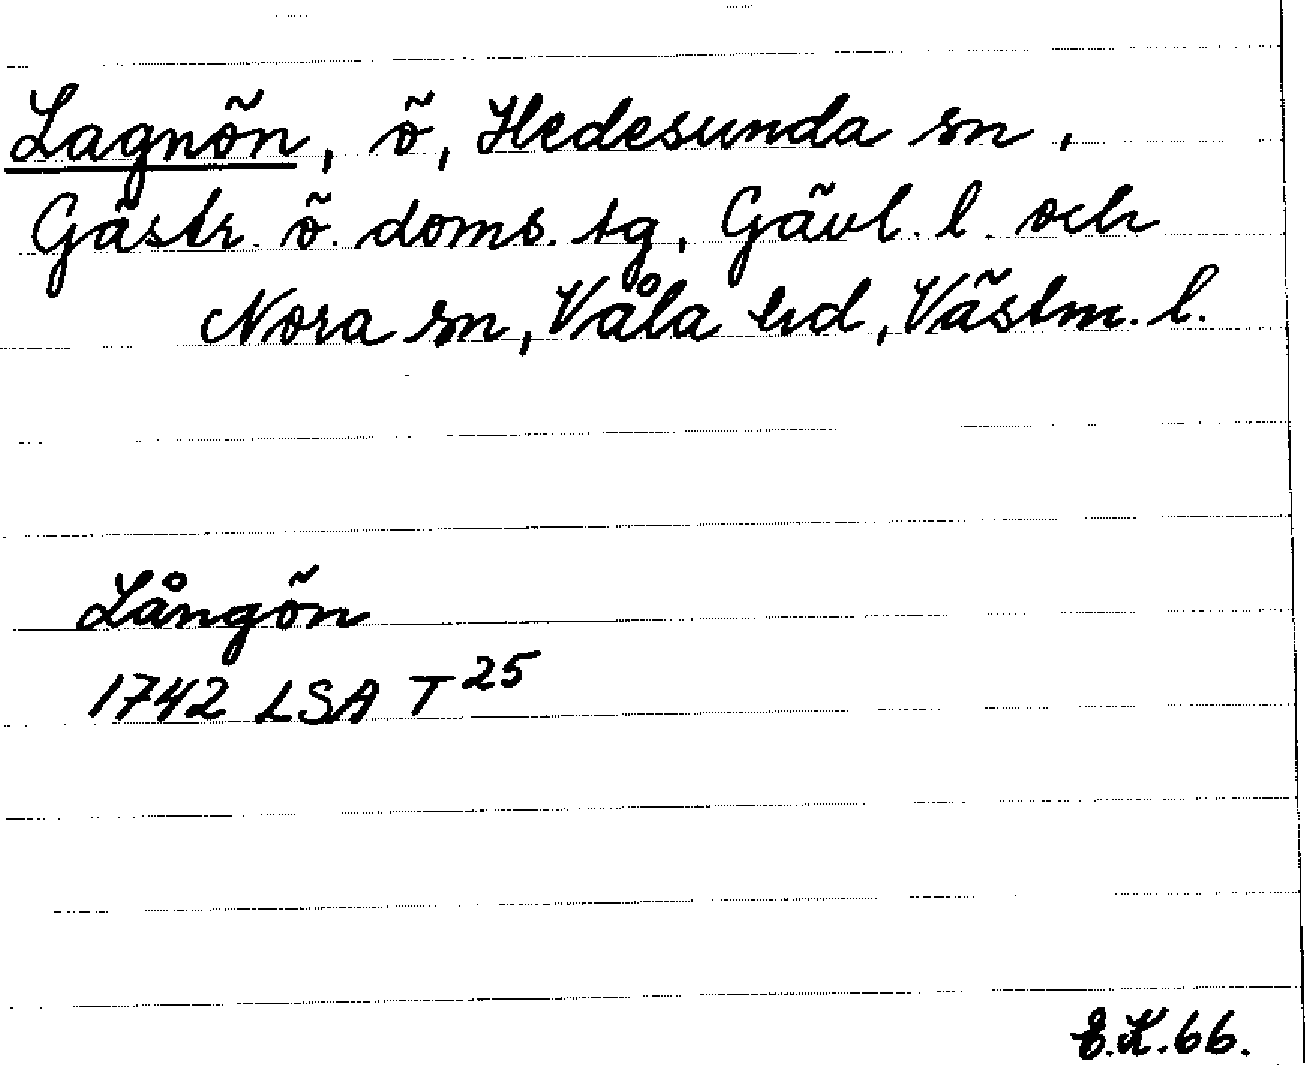 Lagnön, ö, Hedesunda sn,
Gästr. ö. doms. tg, Gävl. l. och
Nora sn, Våla hd, Västm. l.
Långön
1742 LSA T 25
E.K.66.